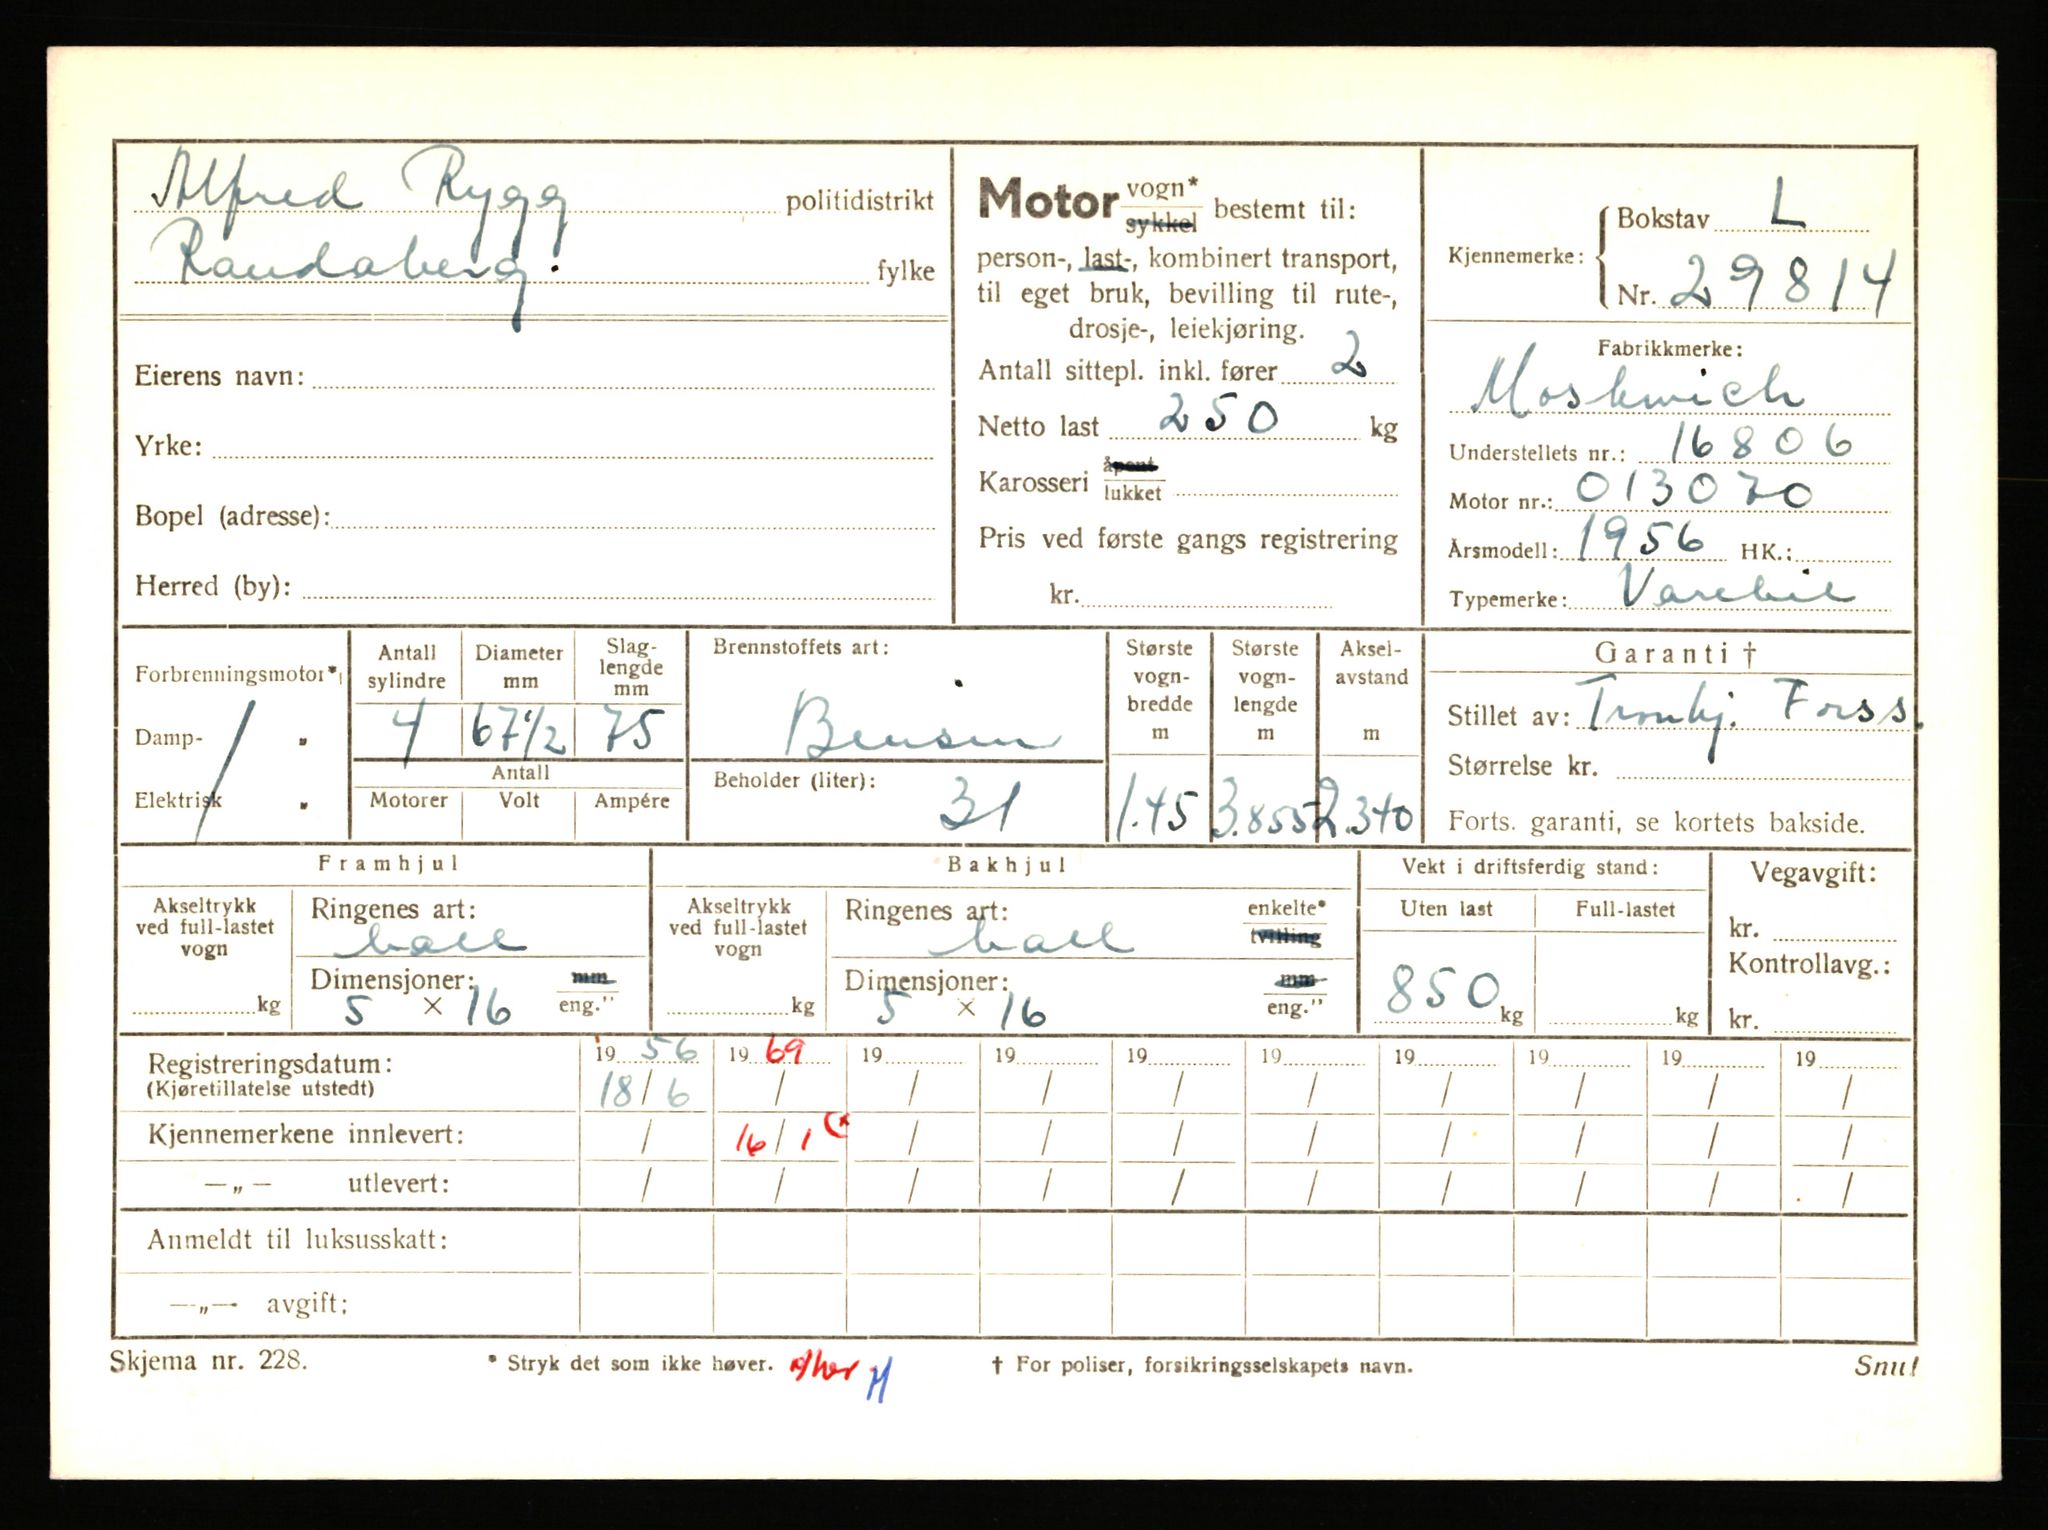 Alfred Rygg politidistrikt
Randaberg. fylke
Eierens navn:
Yrke:
Bopel (adresse):
Herred (by):
Motor vogn* sykkel bestemt til:
person-, last-, kombinert transport,
til eget bruk, bevilling til rute-,
drosje-, leiekjøring.
Antall sittepl. inkl. fører 2
Netto last 250 kg
Karosseri åpent lukket
Pris ved første gangs registrering
kr.
Kjennemerke: Bokstav L
Nr. 29814
Fabrikkmerke:
Moskwich
Understellets nr.: 16806
Motor nr.: 013070
Årsmodell: 1956 HK.:
Typemerke: Varebil
Forbrenningsmotor*
Damp- "
Elektrisk "
Antall sylindre Diameter mm Slag-lengde mm
4 67 1/2 75
Antall
Motorer Volt Ampére
Brennstoffets art:
Bensin
Beholder (liter):
31
Største vogn-bredde m
1.45
Største vogn-lengde m
3.855
Aksel-avstand m
2.340
Garanti †
Stillet av: Tronhj. Forss.
Størrelse kr.
Forts. garanti, se kortets bakside.
Framhjul
Akseltrykk ved full-lastet vogn
kg
Ringenes art:
ball
Dimensjoner: mm
5 × 16 eng."
Bakhjul
Akseltrykk ved full-lastet vogn
kg
Ringenes art: enkelte* tvilling
ball
Dimensjoner: mm
5 × 16 eng."
Vekt i driftsferdig stand:
Uten last Full-lastet
850 kg kg
Vegavgift:
kr.
Kontrollavg.:
kr.
Registreringsdatum: 1956 1969 19 19 19 19 19 19 19 19
(Kjøretillatelse utstedt) 18/6 / / / / / / / / /
Kjennemerkene innlevert: / 16/1 (* / / / / / / / /
—„— utlevert: / / / / / / / / / /
Anmeldt til luksusskatt:
—„— avgift:
Skjema nr. 228. * Stryk det som ikke høver. † For poliser, forsikringsselskapets navn.